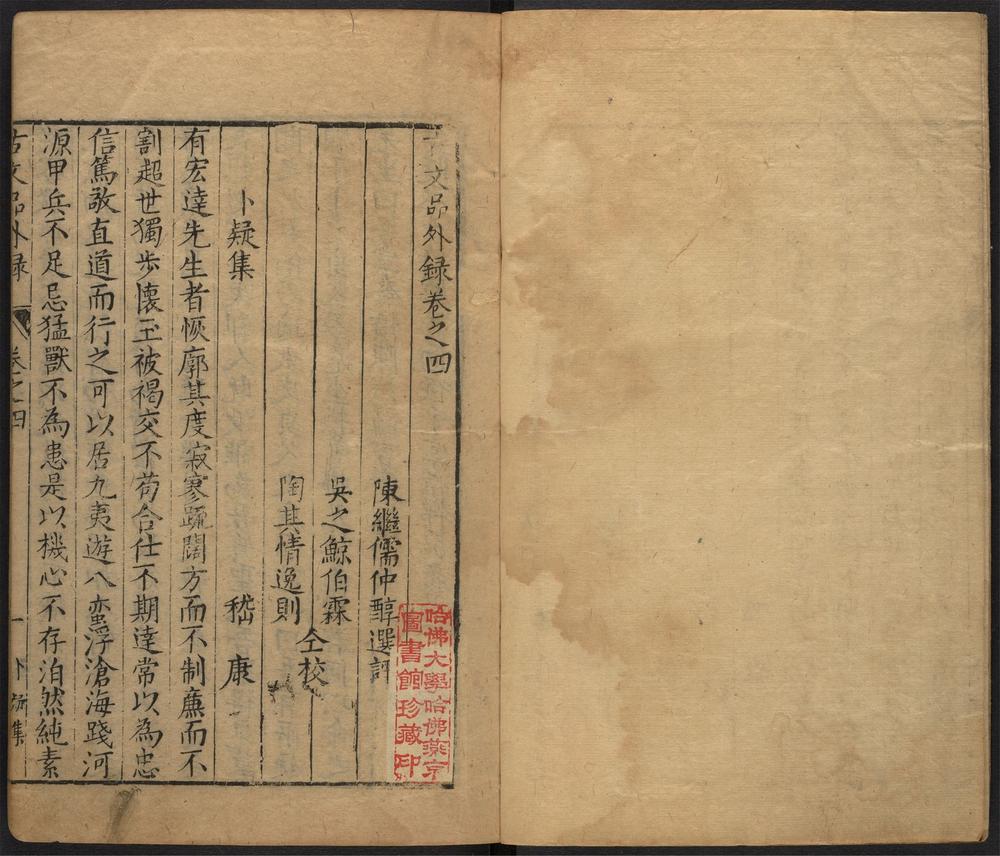 古文品外録卷之四
陳繼儒仲醇選評
吳之鯨伯霖
仝校
陶其情逸則
卜疑集
嵇康
有宏達先生者恢廓其度寂寥踈闊方而不制廉而不
割超世獨步懷玉被褐交不苟合仕不期達常以為忠
信篤敬直道而行之可以居九夷遊八蠻浮滄海踐河
源甲兵不足忌猛獸不為患是以機心不存泊然純素
古文品外録
卷之四
一
卜疑集
哈佛大學哈佛燕京
圖書館珍藏印